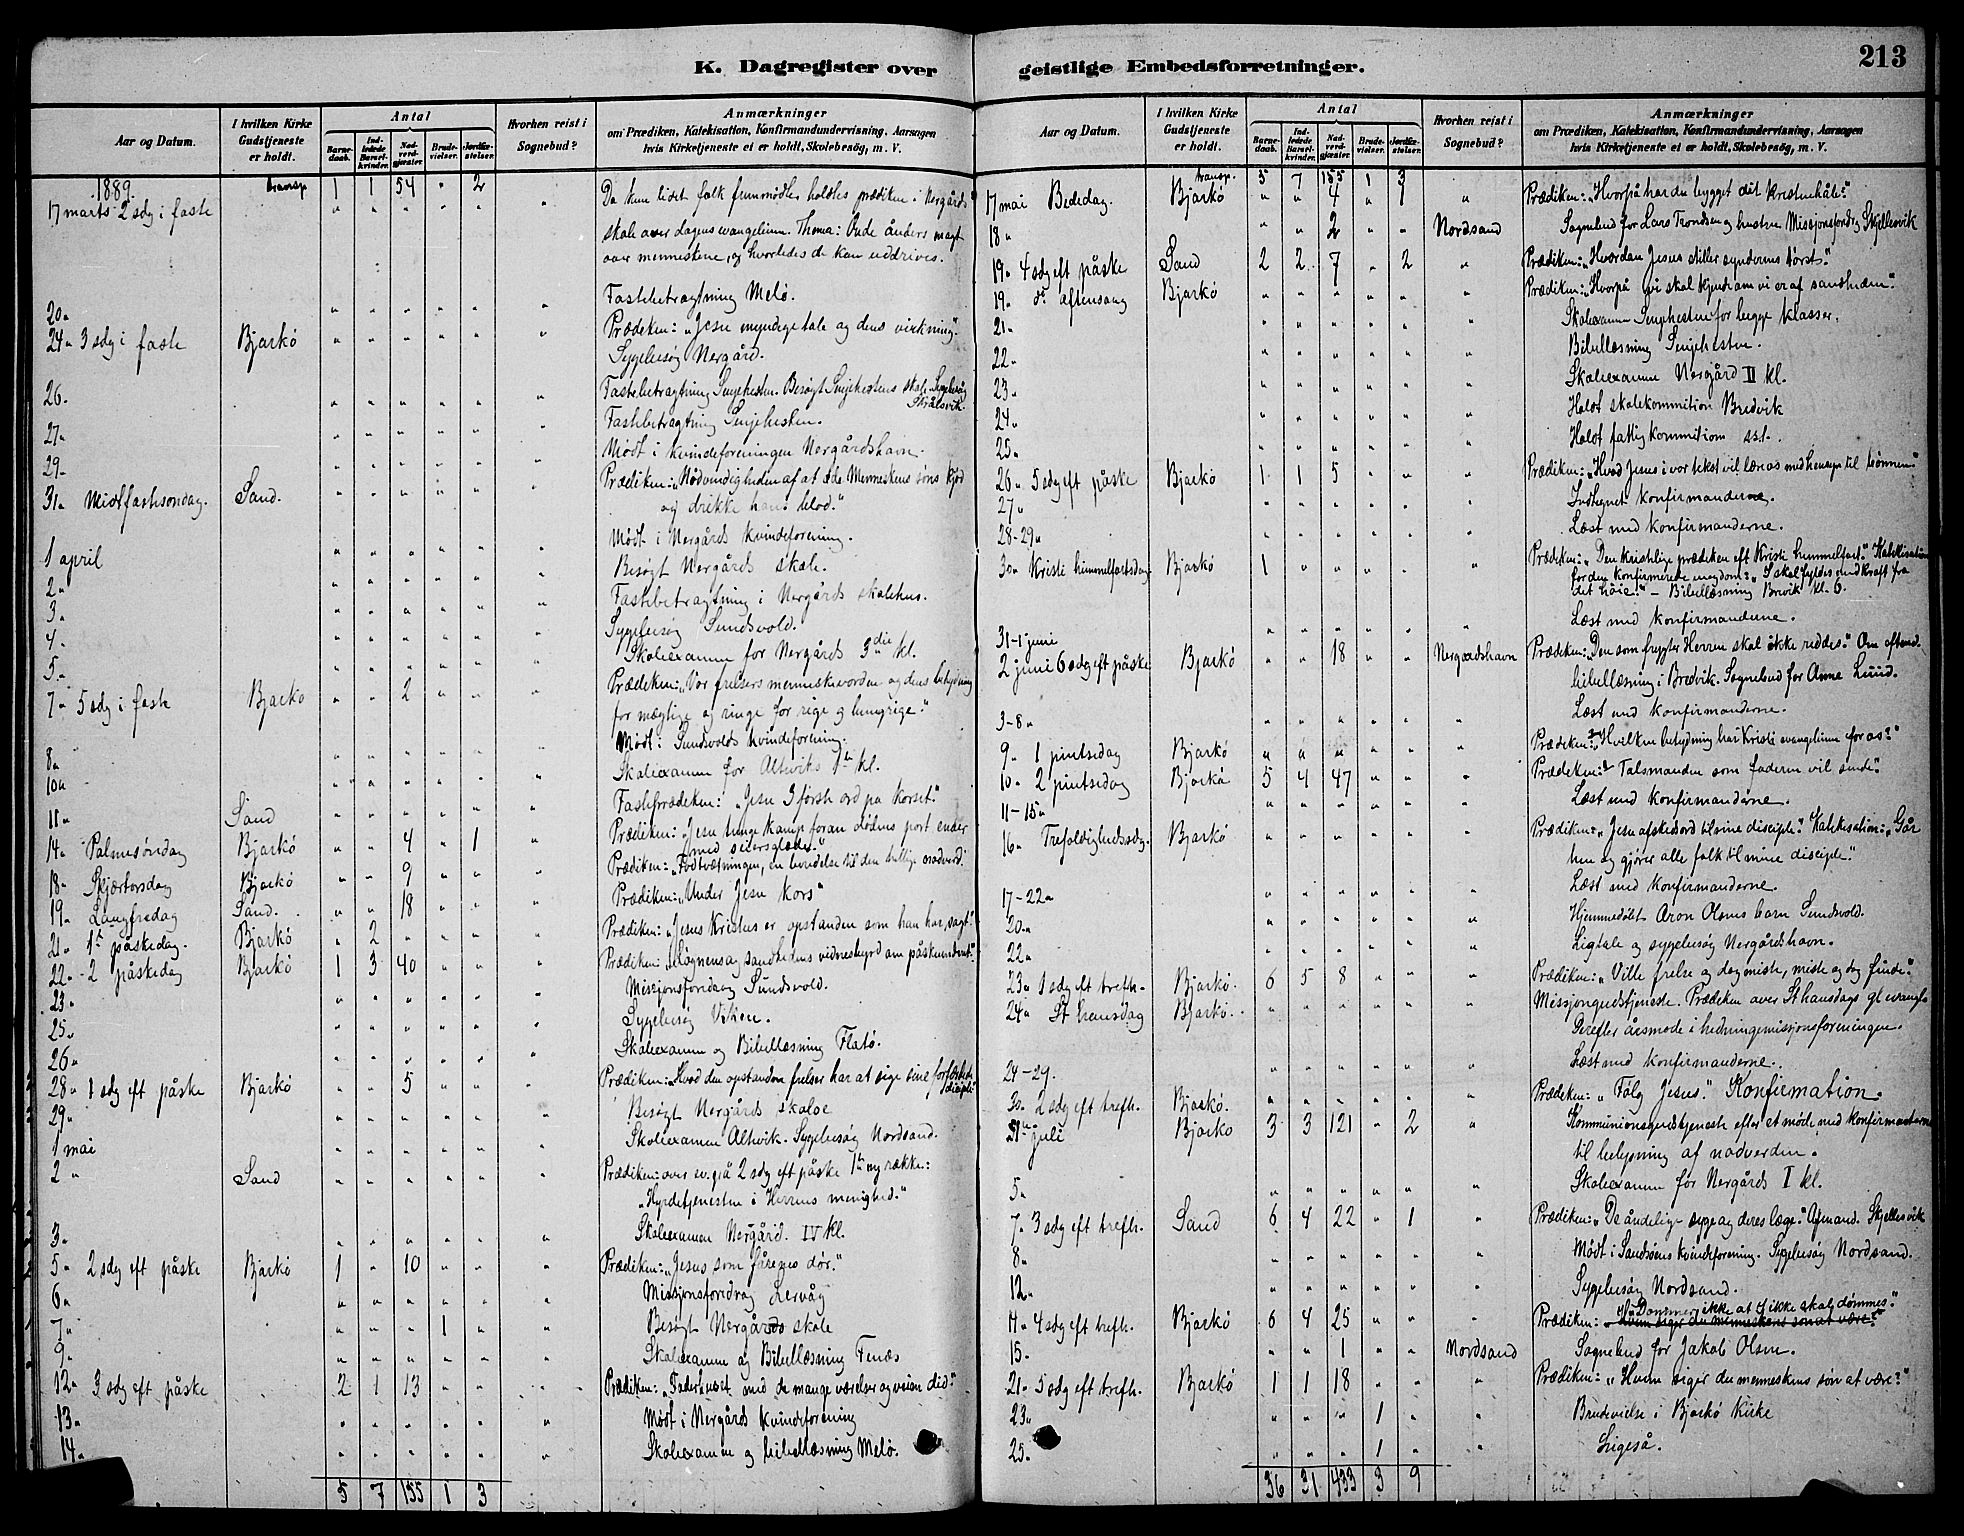 213
K. Dagregister over geistlige Embedsforretninger.
Aar og Datum. I hvilken Kirke Gudstjeneste er holdt. Antal Barnedaab. Indledede Barselkvinder. Nadverdgjæster. Brudevielser. Jordfæstelser. Hvorhen reist i Sognebud? Anmærkninger om Prædiken, Katekisation, Konfirmandundervisning, Aarsagen hvis Kirketjeneste ei er holdt, Skolebesøg, m. V.
1889. transp 1 1 54 " 2
17 marts 2 sdg i faste Da kun lidet folk fremmødte holdtes prædiken i Nergårds
skole over dagens evangelium. Thema: Onde ånders magt
over menneskene, og hvorledes de kan uddrives.
20 " Fastebetragtning Melø.
24 " 3 sdg i faste Bjarkö Prædiken: "Jesu myndige tale og dens virkning".
Sygebesög Nergård.
26. Fastebetragtning Senjehesten. Besögt Senjehestens skole. Sygebesög
27 " Fastebetragtning Senjehesten.
29 " Mödt i kvindeforeningen Nergårdshavn.
31 " Midtfastesöndag. Sand. Prædiken: "Nödvendigheden af at æde Menneskens söns kjöd
og drikke hans blod."
1 april Mödt i Nergårds kvindeforening.
2 " Besögt Nergårds skole.
3 " Fastebetragtning i Nergårds skolehus.
4 " Sygebesög Sundsvold.
5 " Skoleexamen for Nergårds 3die kl.
7 " 5 sdg i faste Bjarkö " " 2 Prædiken: "Vor frelsers menneskevorden og dens betydning
for mægtige og ringe for rige og hungrige."
8 " Mödt i Sundsvolds kvindeforening.
10 " Skoleexamen for Altviks 1te kl.
11 " Sand Fasteprædiken: "Jesu 3 förste ord på korset."
14 " Palmesöndag Bjarkö " " 4 " 1 Prædiken: "Jesu tunge kamp foran dödens port ender
med seiersglæde."
18 " Skjærtorsdag Bjarkö " " 9 Prædiken: "Fodtvætningen, en beredelse til den hellige nadverd."
19 " Langfredag Sand. " " 18 Prædiken: "Under Jesu Kors"
21 " 1te påskedag. Bjarkö " 2 Prædiken: "Jesus Kristus er opstanden som han har sagt."
22 " 2 påskedag Bjarkö 1 3 40 Prædiken: "Lögnens og sandhedens vidnesbyrd om påskeunderet."
23 " Missjonsforedrag Sundsvold.
25 " Sygebesög Viken.
26 " Skoleexamen og Bibellæsning Flatö.
28 " 1 sdg eft påske Bjarkö " " 5 Prædiken: "Hvad den opstandne frelser har at sige sine forfærdede
disciple"
29 " Besögt Nergårds skole
1 mai Skoleexamen Altvik. Sygebesög Nordsand.
2 " Sand Prædiken: over ev. på 2 sdg eft påske 1te ny række:
"Hyrdetjenesten i Herrens menighed."
3 " Skoleexamen Nergård. IV kl.
5 " 2 sdg eft påske Bjarkö 1 " 10 Prædiken: "Jesus som fårenes dör."
6 " Missjonsforedrag Lervåg
7 " 1 Besögt Nergårds skole
9 " Skoleexamen og Bibellæsning Fenæs
12 " 3 sdg eft påske 2 1 13 Prædiken: "Faderhuset med de mange værelser og veien did."
13 " Mödt i Nergårds kvindeforening
14 " Skoleexamen og bibellæsning Melö.
5 7 155 1 3
Aar og Datum. I hvilken Kirke Gudstjeneste er holdt. Antal Barnedaab. Indledede Barselkvinder. Nadverdgjæster. Brudevielser. Jordfæstelser. Hvorhen reist i Sognebud? Anmærkninger om Prædiken, Katekisation, Konfirmandundervisning, Aarsagen hvis Kirketjeneste ei er holdt, Skolebesøg, m. V.
transp. 5 7 155 1 3
17 mai Bededag. Bjarkö " " 4 " 1 Prædiken: "Hvorpå har du bygget dit kristenhåb?"
18 " " " 2 Nordsand Sognebud for Lars Trondsen og hustru Missjonsforedrag Skjellesvik
19 " 4 sdg eft påske Sand 2 2 7 " 2 Prædiken: "Hvordan Jesus stiller syndernes törst."
19 " d. aftensang Bjarkö Prædiken: "Hvorpå vi skal kjende om vi er af sandheden."
21 " Skoleexamen Senjehesten for begge klasser.
22 " Bibellæsning Senjehesten.
23 " Skoleexamen Nergård II kl.
24 " Holdt skolekommition Bredvik
25 " Holdt fattigkommition sst.
26 " 5 sdg eft påske Bjarkö 1 1 5 Prædiken: "Hvad Jesus i vor tekst vil lære os med hensyn til bönnen."
27 " Indtegnet konfirmanderne.
28-29 " Læst med konfirmanderne.
30 " Kristi himmelfartsdag Bjarkö 1 Prædiken: "Den kristelige prædiken eft Kristi himmelfart." Katekisation
for den konfirmerede ungdom: "I skal fyldes med kraft fra
det höie." - Bibellæsning Brevik kl. 6.
31-1 juni Læst med konfirmanderne.
2 juni 6 sdg eft påske Bjarkö " " 18 Nergaardshavn Prædiken: "Den som frygter Herren skal ikke reddes." Om aftend.
bibellæsning i Bredvik. Sognebud for Anne Lund.
3-8 " Læst med konfirmanderne.
9 " 1 pintsedag Bjarkö Prædiken: "Hvilken betydning har Kristi evangelium for os?"
10 " 2 pintsedag Bjarkö 5 4 47 Prædiken: "Talsmanden som faderen vil sende."
11-15 " Læst med konfirmanderne.
16 " Trefoldighedssdg. Bjarkö Prædiken: "Jesu afskedsord til sine disciple." Katekisation: "Går
hen og gjörer alle folk til mine disciple."
17-22 " Læst med konfirmanderne.
20 " Hjemmedöbt Aron Olsens barn Sundsvold.
22 " Ligtale og sygebesög Nergårdshavn.
23 " 1 sdg eft trefh. Bjarkö. 6 5 8 Prædiken: "Ville frelse og dog miste, miste og dog finde."
24 " St hansdag Bjarkö. Missjonsgudstjeneste. Prædiken over St hansdags gl evangl.
Derefter årsmöde i hedningemissjonsforeningen.
24-29. Læst med konfirmanderne.
30 " 2 sdg eft trefh. Bjarkö. Prædiken: "Fölg Jesus." Konfirmation.
juli Bjarkö 3 3 121 " 2 Kommunionsgudstjeneste efter et möde med konfirmanderne
til belysning af nadverden.
5 " Skoleexamen for Nergårds I kl.
7 " 3 sdg eft trefh. Sand 6 4 22 " 1 Prædiken: "De åndelige syge og deres læge." Aftnand. Skjellesvik
8 " Mödt i Sandsöens kvindeforening. Sygebesög Nordsand.
12 " Sygebesög Nordsand.
"Dömmer ikke at I ikke skal dömmes."
14 " 4 sdg eft trefh. Bjarkö 6 4 25 Prædiken: "Hvem siger du menneskens sön at være?"
15 " " " 1 Nordsand Sognebud for Jakob Olsen.
21 " 5 sdg eft trefh. Bjarkö 1 1 18 Prædiken: "Hvem siger du menneskens sön at være?"
23 " 1 Brudevielse i Bjarkö Kirke
25 " 1 Ligeså.
36 31 433 3 9